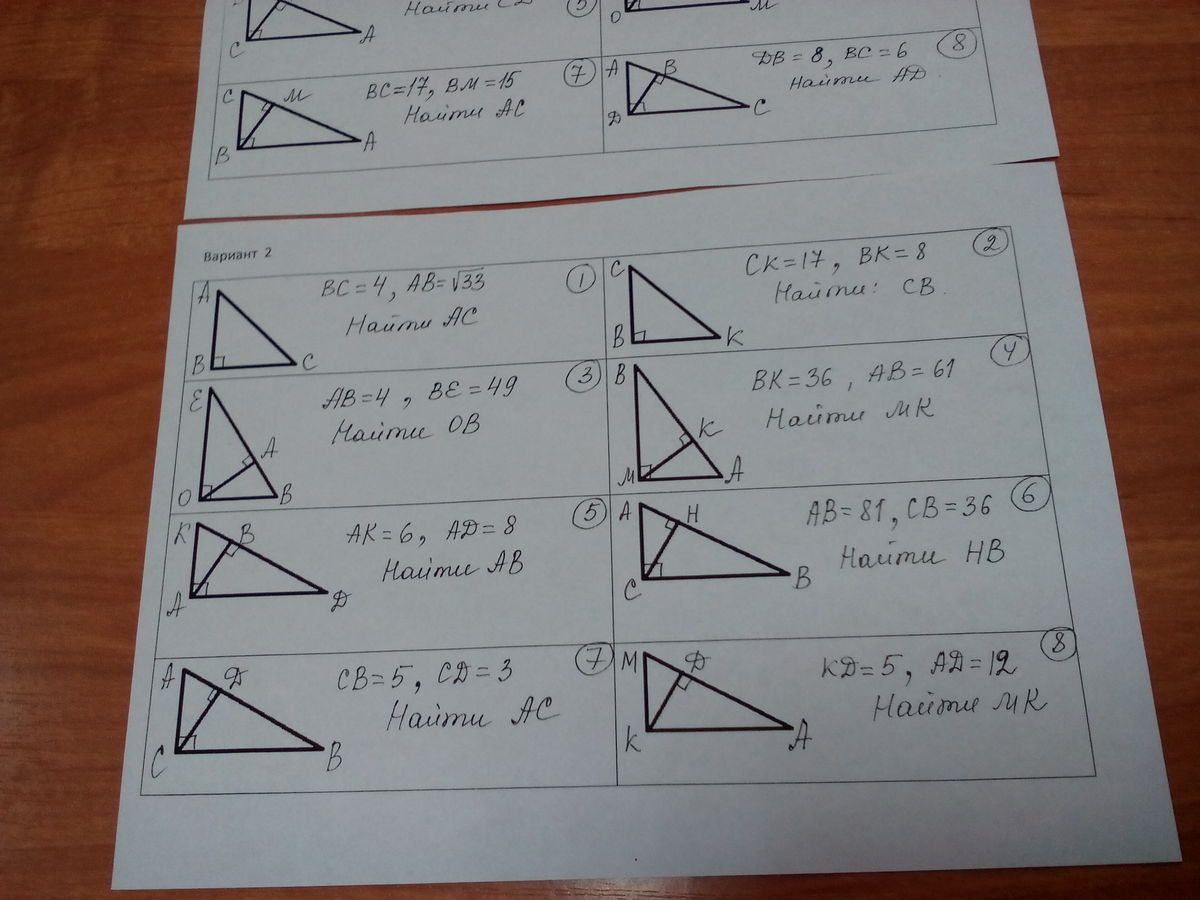 Найти CD
5
C
A
O
M
BC=17, BM=15
7
Найти AC
C
M
B
A
DB = 8, BC = 6
8
Найти AD.
A
B
D
C
Вариант 2
BC = 4, AB = √33
1
Найти AC
A
B
C
CK = 17, BK = 8
2
Найти: CB.
C
B
K
AB = 4, BE = 49
3
Найти OB
E
A
O
B
BK = 36, AB = 61
4
Найти MK
B
K
M
A
AK = 6, AD = 8
5
Найти AB
K
B
A
D
AB = 81, CB = 36
6
Найти HB
A
H
C
B
CB = 5, CD = 3
7
Найти AC
A
D
C
B
KD = 5, AD = 12
8
Найти MK
M
D
K
A